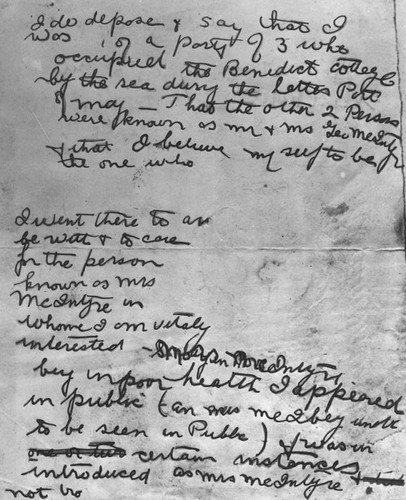 I do depose & say that I
was of a party of 3 who
occupied the Benedict cottage
by the sea during the latter Part
of may — That the other 2 Persons
were known as mr & ms Geo McIntyre
& that I believe my self to be
the one who
I went there to
be wait & to care
for the person
known as mrs
McIntyre in
whome I am vitaly
interested - McIntyre
buy in poor health I appeared
in public ( mrs
to be seen in Public ) & was in
one or two certain instances
introduced as mrs mcIntyre &
not